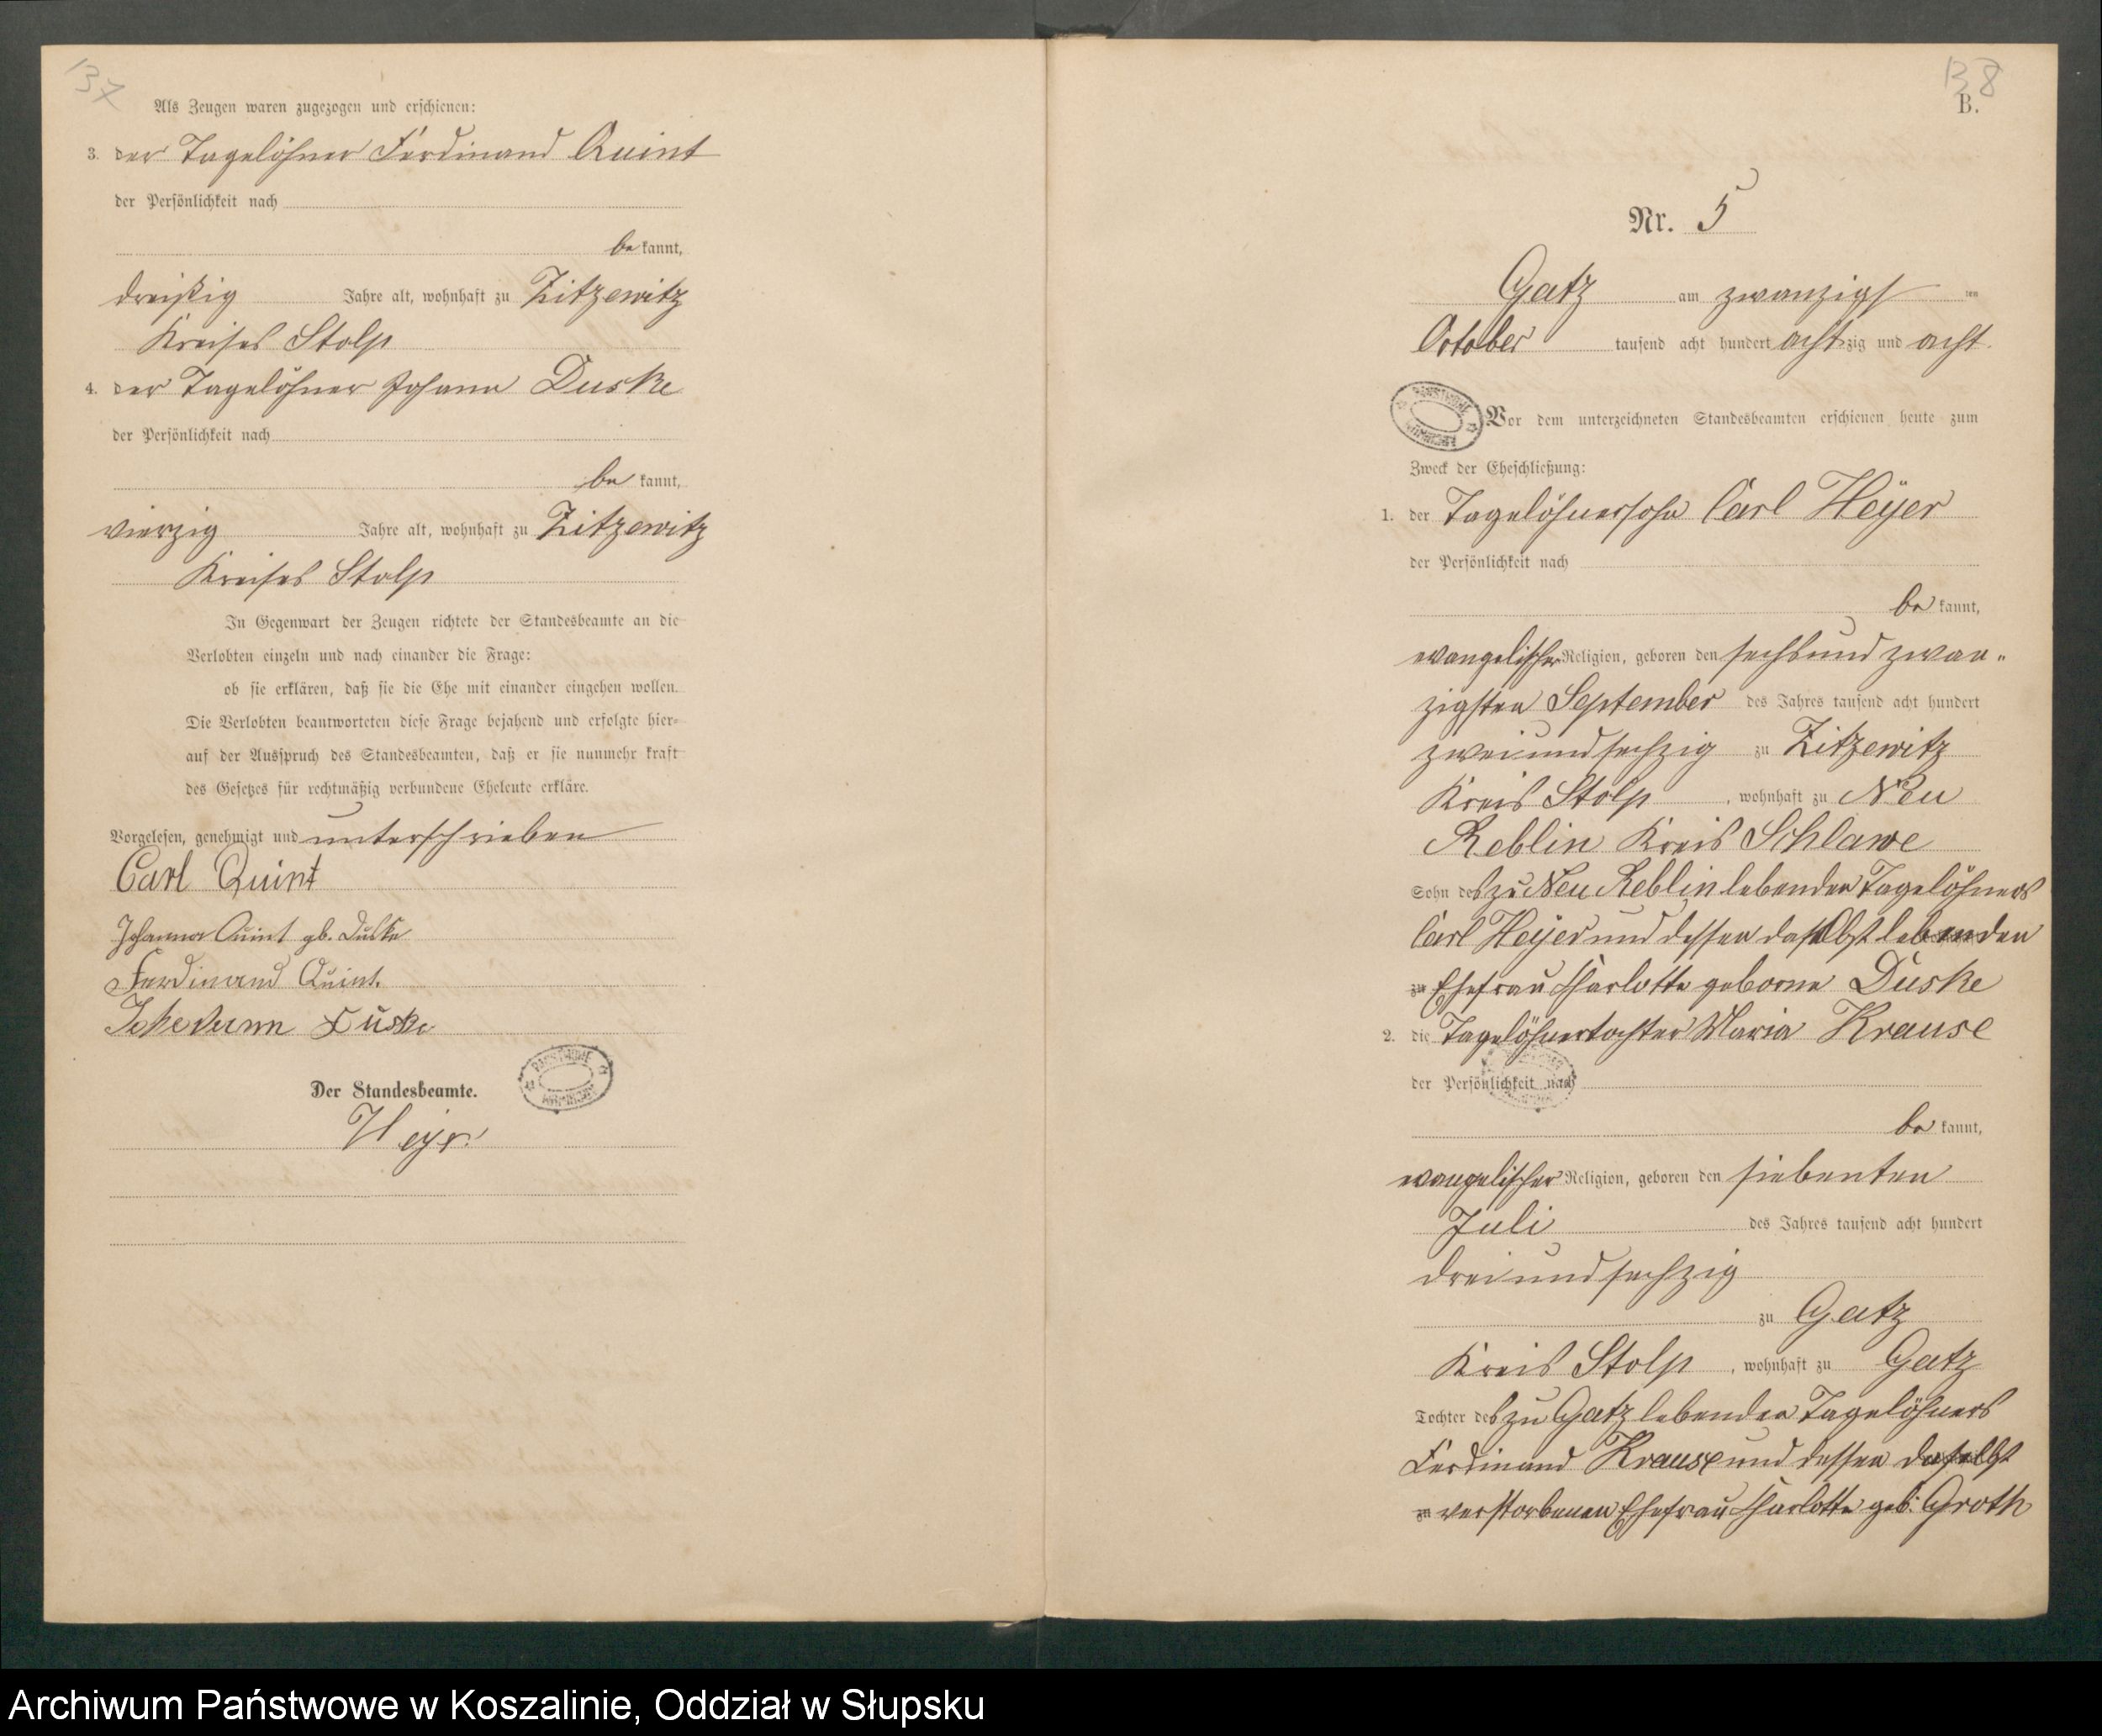 137
Als Zeugen waren zugezogen und erschienen:
3. der Tagelöhner Ferdinand Quint
der Persönlichkeit nach
be kannt,
dreißig Jahre alt, wohnhaft zu Zitzewitz
Kreises Stolp
4. der Tagelöhner Johann Duske
der Persönlichkeit nach
be kannt,
vierzig Jahre alt, wohnhaft zu Zitzewitz
Kreises Stolp
In Gegenwart der Zeugen richtete der Standesbeamte an die
Verlobten einzeln und nach einander die Frage:
ob sie erklären, daß sie die Ehe mit einander eingehen wollen.
Die Verlobten beantworteten diese Frage bejahend und erfolgte hier-
auf der Ausspruch des Standesbeamten, daß er sie nunmehr kraft
des Gesetzes für rechtmäßig verbundene Eheleute erkläre.
Vorgelesen, genehmigt und unterschrieben
Carl Quint
Johanna Quint gb. Duske
Ferdinand Quint.
Duske
Der Standesbeamte.
138
B.
Nr. 5
Gatz am zwanzigsten
October tausend acht hundert achtzig und acht.
Vor dem unterzeichneten Standesbeamten erschienen heute zum
Zweck der Eheschließung:
1. der Tagelöhnersohn Carl Heyer
der Persönlichkeit nach
be kannt,
evangelischer Religion, geboren den sechsundzwan-
zigsten September des Jahres tausend acht hundert
zweiundsechzig zu Zitzewitz
Kreis Stolp, wohnhaft zu Neu
Reblin Kreis Schlawe
Sohn des zu Neu Reblin lebenden Tagelöhners
Carl Heyer und dessen daselbst lebenden
zu Ehefrau Charlotte geborne Duske
2. die Tagelöhnertochter Maria Krause
der Persönlichkeit nach
be kannt,
evangelischer Religion, geboren den siebenten
Juli des Jahres tausend acht hundert
dreiundsechzig
zu Gatz
Kreis Stolp, wohnhaft zu Gatz
Tochter des zu Gatz lebenden Tagelöhners
Ferdinand Krause und dessen daselbst
zu verstorbenen Ehefrau Charlotte geb: Groth
Archiwum Państwowe w Koszalinie, Oddział w Słupsku